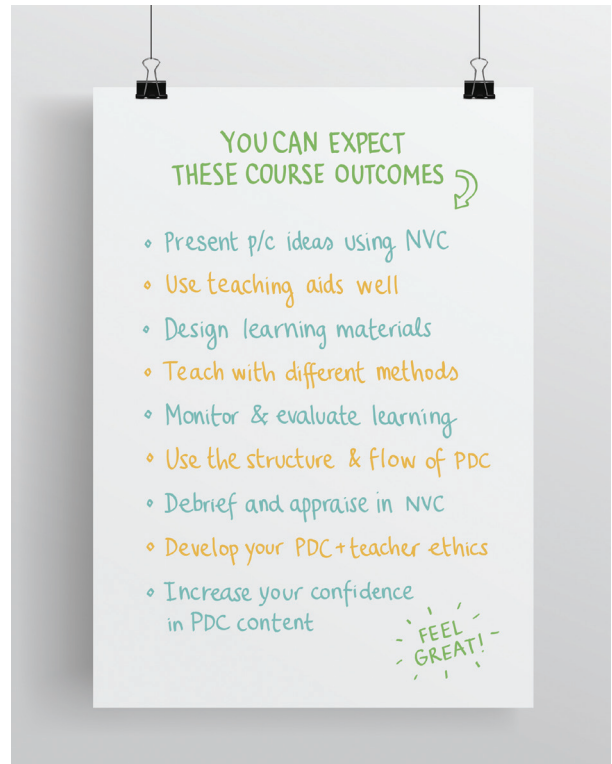 YOU CAN EXPECT
THESE COURSE OUTCOMES
Present p/c ideas using NVC
Use teaching aids well
Design learning materials
Teach with different methods
Monitor & evaluate learning
Use the structure & flow of PDC
Debrief and appraise in NVC
Develop your PDC + teacher ethics
Increase your confidence
in PDC content
FEEL
GREAT!